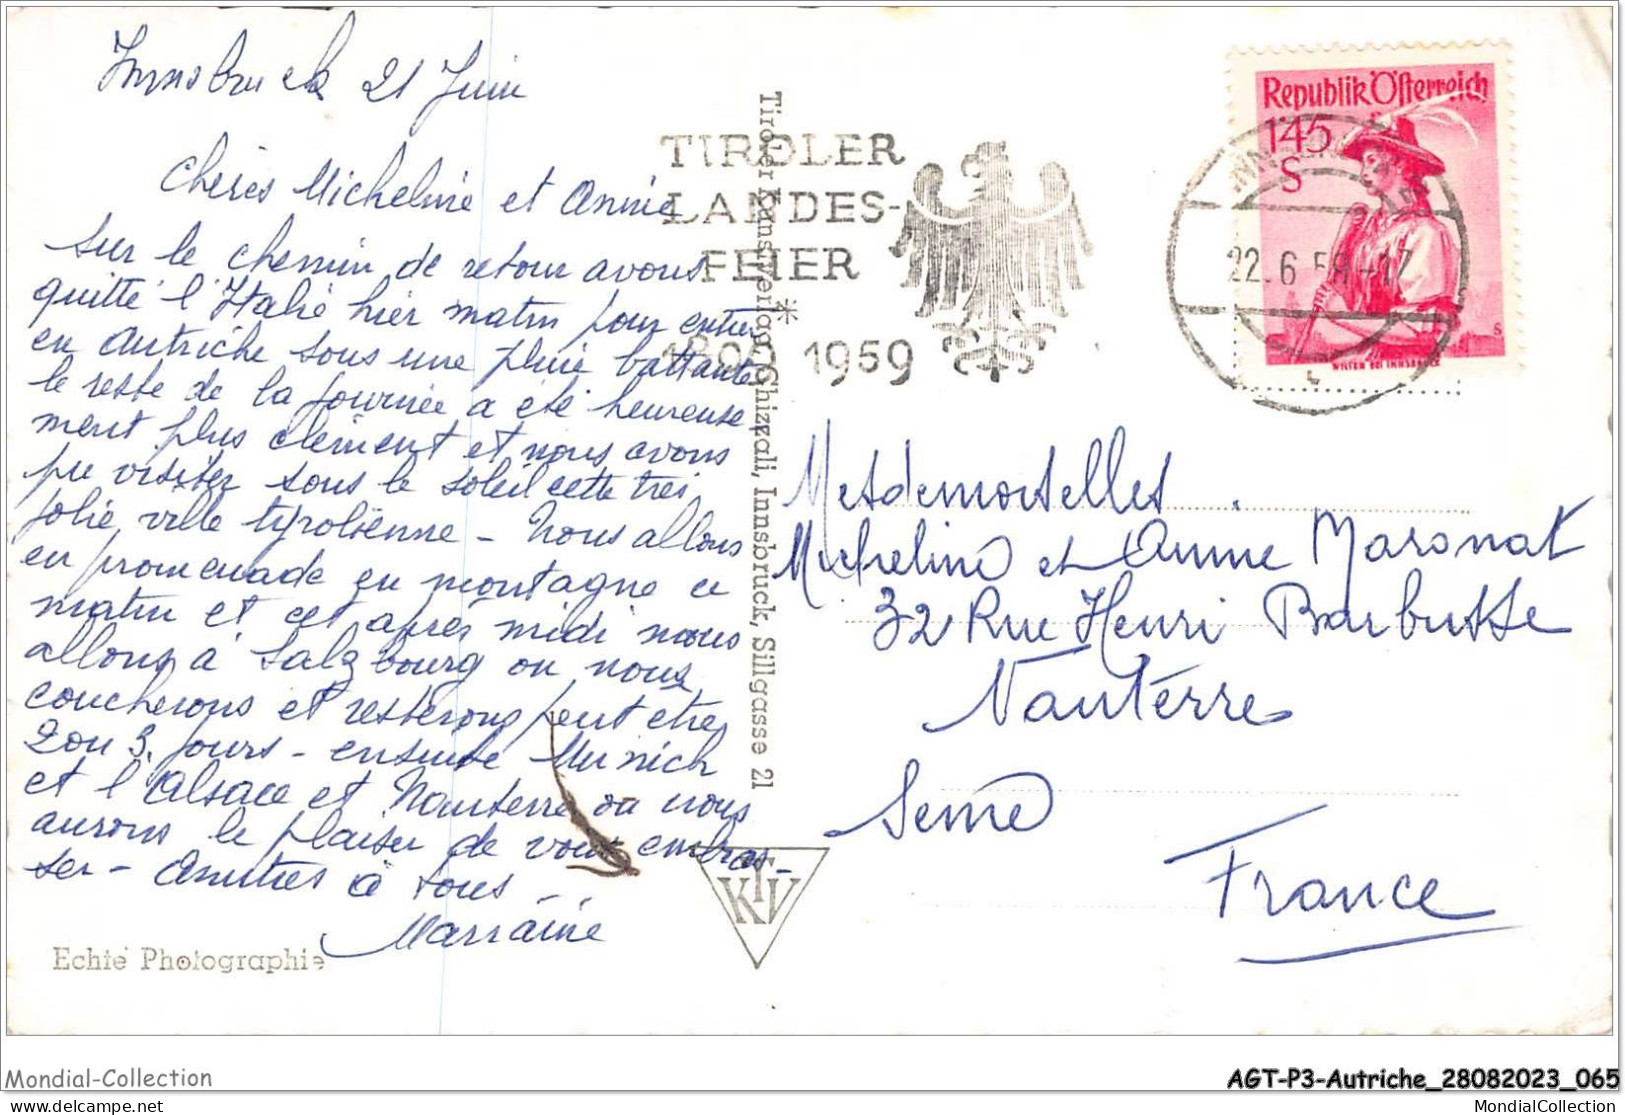 Innsbruck 21 Juin
Chères Micheline et Annie
Sur le chemin de retour avons
quitté l'Italie hier matin pour entrer
en Autriche sous une pluie battante
le reste de la journée a été heureuse
ment plus clément et nous avons
pu visiter sous le soleil cette très
jolie ville tyrolienne - Nous allons
en promenade en montagne ce
matin et cet après midi nous
allons à Salzbourg ou nous
coucherons et resterons peut etre
2 ou 3 jours - ensuite Munich
et l'Alsace et Nanterre ou nous
aurons le plaisir de vous embras-
ser - Amitiés à tous -
Marraine
Echte Photographie
Tiroler Kunstverlag Chizzali, Innsbruck, Sillgasse 21
KTV
TIROLER
LANDES-
FEIER
*
1809 1959
Republik Österreich
145
S
WILTEN BEI INNSBRUCK
22.6.59-17
Mesdemoiselles
Micheline et Annie Maronat
32 Rue Henri Barbusse
Nanterre
Seine
France
Mondial-Collection
AGT-P3-Autriche_28082023_065
Mondial-Collection.com
MondialCollection